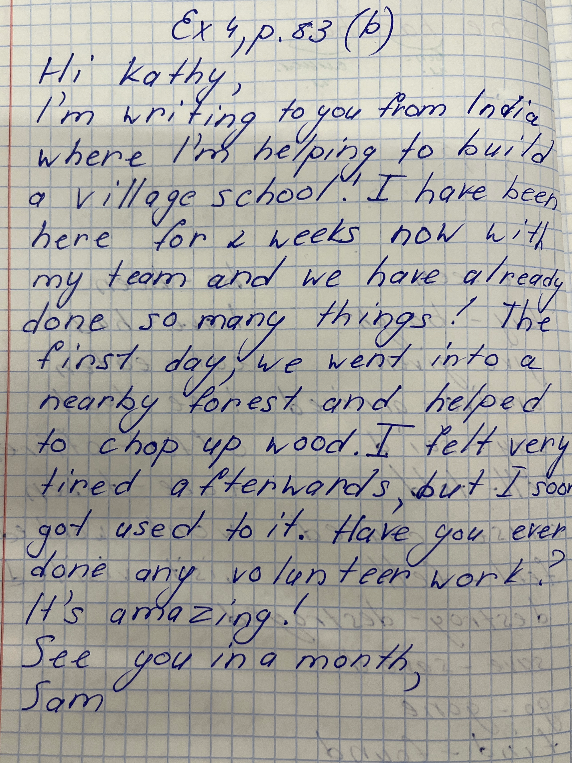 Ex 4, p. 83 (b)
Hi Kathy,
I'm writing to you from India
where I'm helping to build
a village school! I have been
here for 2 weeks now with
my team and we have already
done so many things! The
first day, we went into a
nearby forest and helped
to chop up wood. I felt very
tired afterwards, but I soon
got used to it. Have you ever
done any volunteer work?
It's amazing!
See you in a month,
Sam